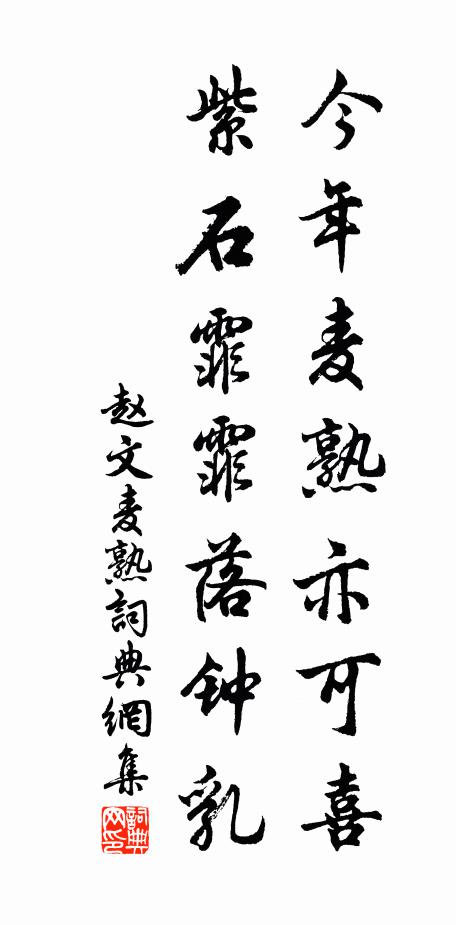 今年麦熟亦可喜
紫石霏霏落钟乳
赵文麦熟詞典網集
詞典
网印